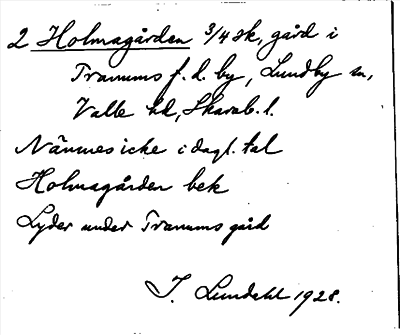 2 Holmagården 3/4 sk, gård i
Tranums f. d. by, Lundby sn,
Valle hd, Skarab. l.
Nämnes icke i dagl. tal
Holmagården bek
Lyder under Tranums gård
I. Lundahl 1928.